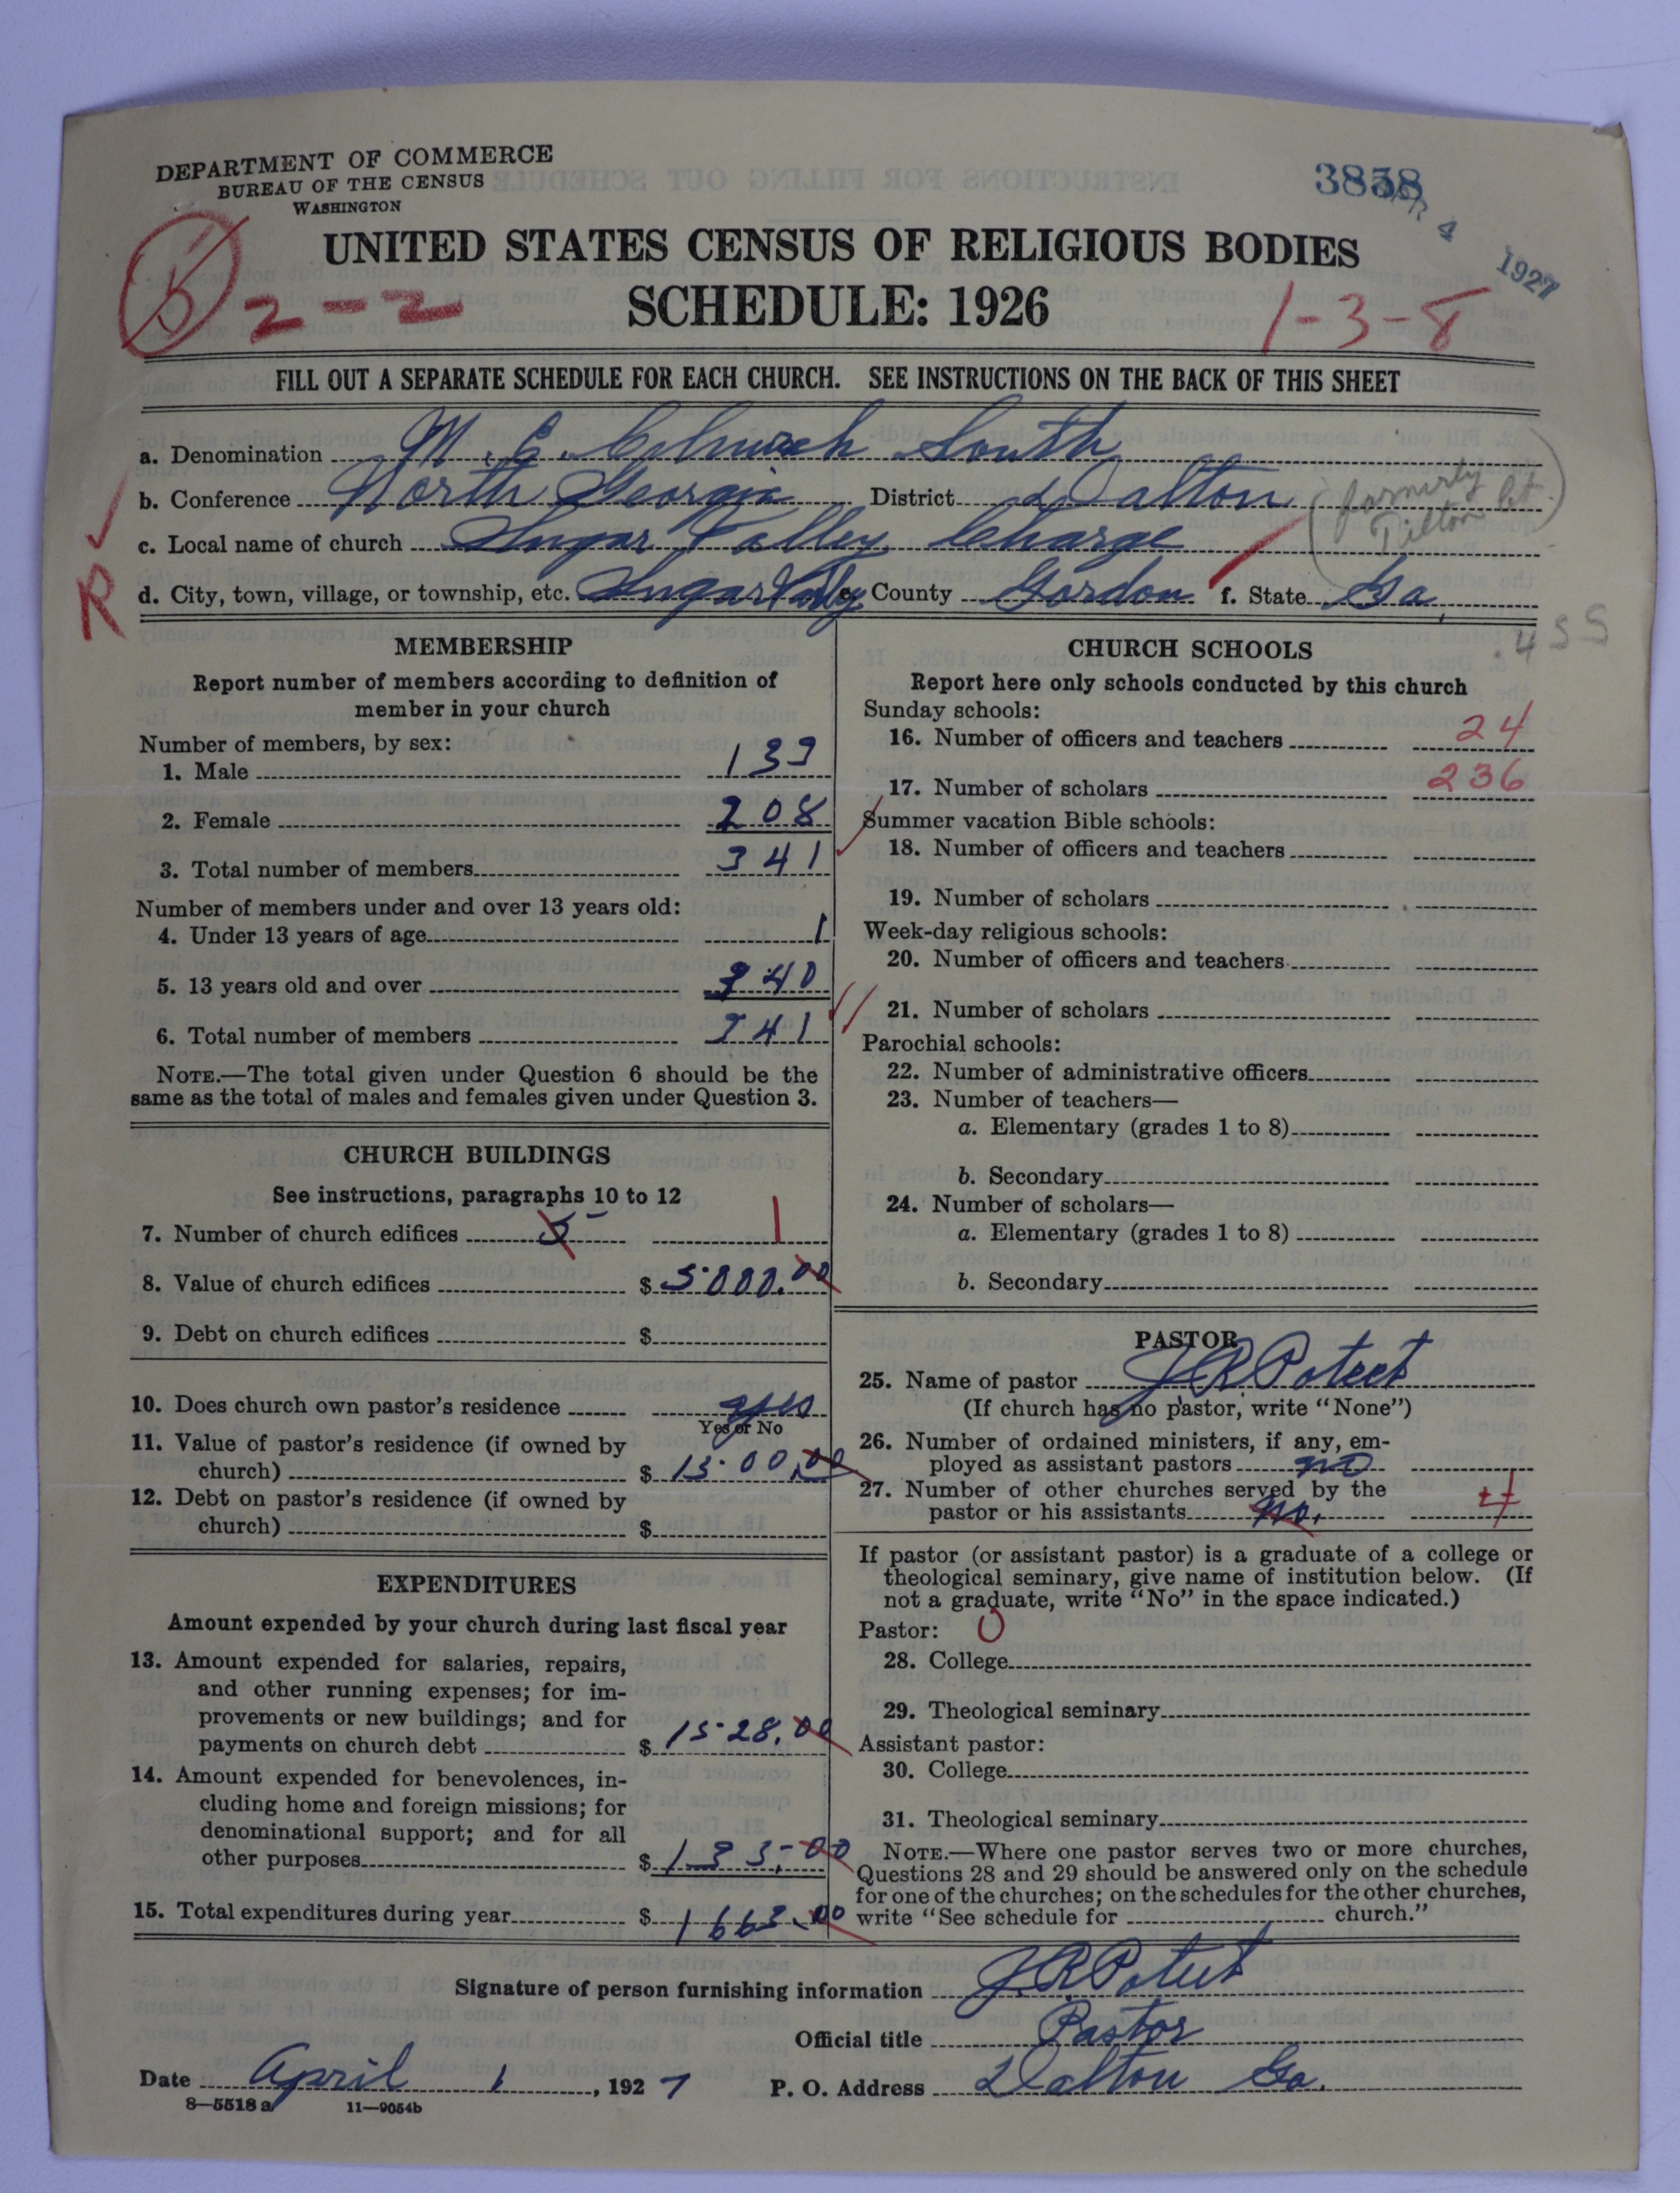 DEPARTMENT OF COMMERCE
BUREAU OF THE CENSUS
WASHINGTON
3838
APR 4 1927
UNITED STATES CENSUS OF RELIGIOUS BODIES
SCHEDULE: 1926
2-2
1-3-8
FILL OUT A SEPARATE SCHEDULE FOR EACH CHURCH. SEE INSTRUCTIONS ON THE BACK OF THIS SHEET
a. Denomination M. E. Church South
b. Conference North Georgia District Dalton (formerly Tilton Ct.)
c. Local name of church Sugar Valley Charge
R
d. City, town, village, or township, etc. Sugar Valley e. County Gordon f. State Ga.
4 SS
MEMBERSHIP
Report number of members according to definition of
member in your church
Number of members, by sex:
1. Male 133
2. Female 208
3. Total number of members 341
Number of members under and over 13 years old:
4. Under 13 years of age 1
5. 13 years old and over 340
6. Total number of members 341
NOTE.—The total given under Question 6 should be the
same as the total of males and females given under Question 3.
CHURCH BUILDINGS
See instructions, paragraphs 10 to 12
7. Number of church edifices 5 1
8. Value of church edifices $ 5000.00
9. Debt on church edifices $
10. Does church own pastor's residence yes
Yes or No
11. Value of pastor's residence (if owned by
church) $ 1500.00
12. Debt on pastor's residence (if owned by
church) $
EXPENDITURES
Amount expended by your church during last fiscal year
13. Amount expended for salaries, repairs,
and other running expenses; for im-
provements or new buildings; and for
payments on church debt $ 1528.00
14. Amount expended for benevolences, in-
cluding home and foreign missions; for
denominational support; and for all
other purposes $ 135.00
15. Total expenditures during year $ 1663.00
CHURCH SCHOOLS
Report here only schools conducted by this church
Sunday schools:
16. Number of officers and teachers 24
17. Number of scholars 236
Summer vacation Bible schools:
18. Number of officers and teachers
19. Number of scholars
Week-day religious schools:
20. Number of officers and teachers
21. Number of scholars
Parochial schools:
22. Number of administrative officers
23. Number of teachers—
a. Elementary (grades 1 to 8)
b. Secondary
24. Number of scholars—
a. Elementary (grades 1 to 8)
b. Secondary
PASTOR
25. Name of pastor J R Poteet
(If church has no pastor, write "None")
26. Number of ordained ministers, if any, em-
ployed as assistant pastors no
27. Number of other churches served by the
pastor or his assistants no. 4
If pastor (or assistant pastor) is a graduate of a college or
theological seminary, give name of institution below. (If
not a graduate, write "No" in the space indicated.)
Pastor: 0
28. College
29. Theological seminary
Assistant pastor:
30. College
31. Theological seminary
NOTE.—Where one pastor serves two or more churches,
Questions 28 and 29 should be answered only on the schedule
for one of the churches; on the schedules for the other churches,
write "See schedule for church."
Signature of person furnishing information J R Poteet
Official title Pastor
Date April 1, 1927 P. O. Address Dalton Ga.
8—5518 a 11—9054b